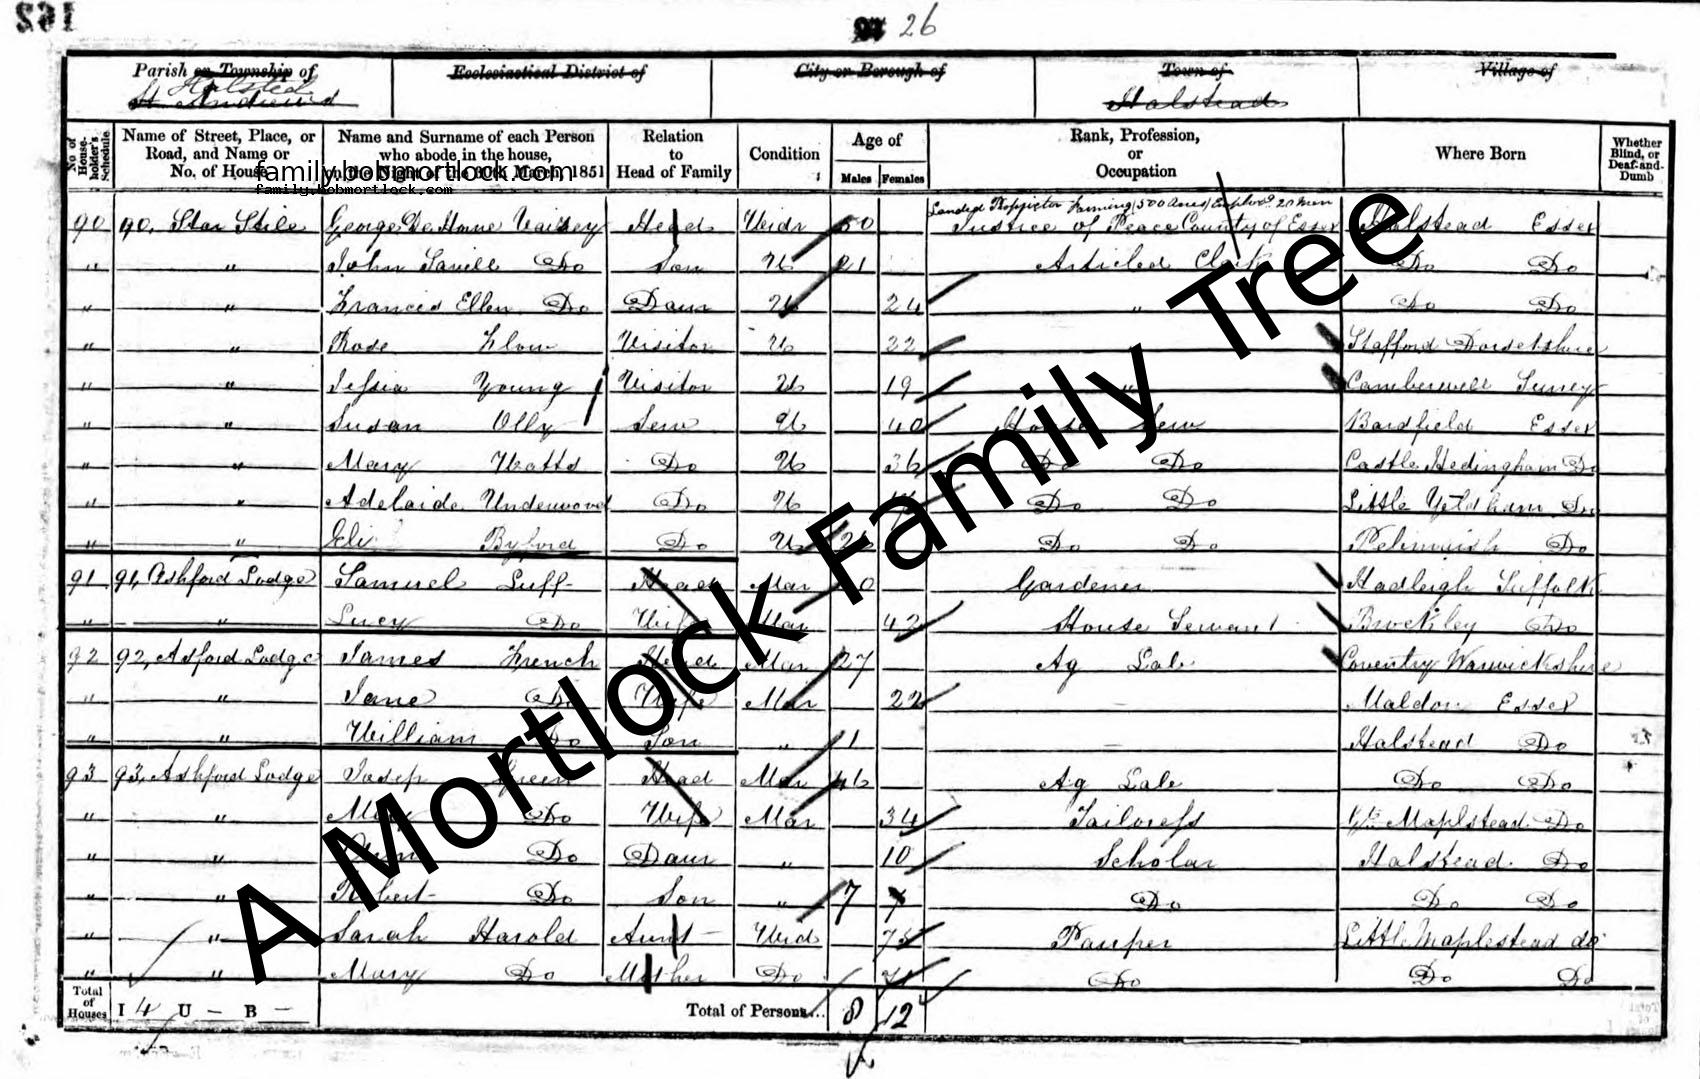 162
26
Parish or Township of
Halsted
St Andrews
Ecclesiastical District of
City or Borough of
Town of
Halstead
Village of
No. of House-holder's Schedule
Name of Street, Place, or Road, and Name or No. of House
Name and Surname of each Person who abode in the house, on the Night of the 30th March, 1851
Relation to Head of Family
Condition
Age of
Males Females
Rank, Profession, or Occupation
Where Born
Whether Blind, or Deaf-and-Dumb
family.bobmortlock.com
family.bobmortlock.com
Landed Proprietor Farming (500 Acres) Employs 20 Men
90 90, Star Stile George De Horne Vaizey Head Widr 50 Justice of Peace County of Essex Halstead Essex
" " John Savill Do Son U 21 Articled Clerk Do Do
" " Frances Ellen Do Daur U 24 " Do Do
" " Rose Visitor U 22 " Stafford Dorsetshire
" " Jessie Young Visitor U 19 " Camberwell Surrey
" " Susan Olly Serv U 40 House Serv Bardfield Essex
" " Mary Watts Do U 36 Do Do Castle Hedingham Do
" " Adelaide Underwood Do U Do Do Little Yeldham Do
" " Eli Byford Do U Do Do Do
91 91, Ashford Lodge Samuel Luff Head Mar Gardener Hadleigh Suffolk
" " Lucy Do Wife Mar 42 House Servant Brockley Do
92 92, Asford Lodge James French Head Mar 27 Ag Lab Coventry Warwickshire
" " Jane Do Wife Mar 22 – Maldon Essex
" " William Do Son " 1 – Halstead Do
93 93, Ashford Lodge Joseph Green Head Mar 46 Ag Lab Do Do
" " Mary Do Wife Mar 34 Tailoress Maplstead Do
" " Do Daur " 10 Scholar Halstead Do
" " Robert Do Son " 7 Do Do Do
" " Sarah Harold Aunt Wid 75 Pauper Little Maplestead do
" " Mary Do Mother Do Do Do Do
Total of Houses I 4 U – B – Total of Persons... 8 12
A Mortlock Family Tree